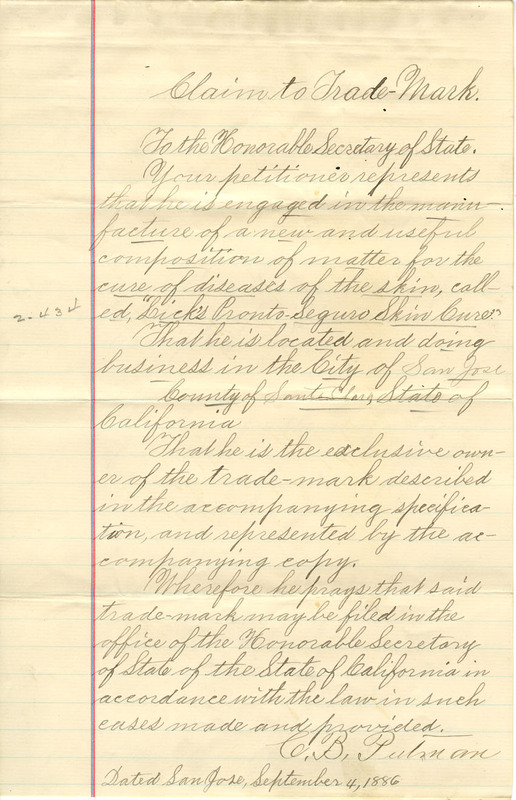 Claim to Trade-Mark.
To the Honorable Secretary of State.
Your petitioner represents
that he is engaged in the manu-
facture of a new and useful
composition of matter for the
cure of diseases of the skin, call-
ed, "Dick's Pronto-Seguro Skin Cure."
2-434
That he is located and doing
business in the City of San Jose
County of Santa Clara, State of
California
That he is the exclusive own-
er of the trade-mark described
in the accompanying specifica-
tion, and represented by the ac-
companying copy.
Wherefore he prays that said
trade-mark may be filed in the
office of the Honorable Secretary
of State of the State of California in
accordance with the law in such
cases made and provided.
C. B. Putman
Dated San Jose, September 4, 1886